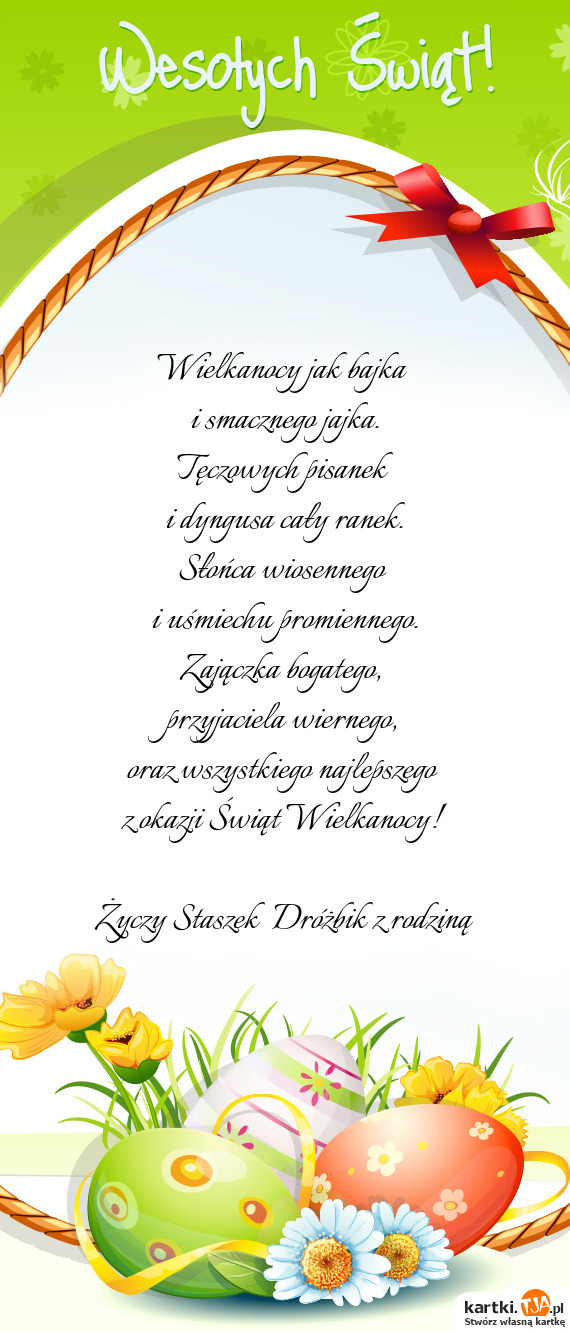 Wesołych Świąt!
Wielkanocy jak bajka
i smacznego jajka.
Tęczowych pisanek
i dyngusa cały ranek.
Słońca wiosennego
i uśmiechu promiennego.
Zajączka bogatego,
przyjaciela wiernego,
oraz wszystkiego najlepszego
z okazji Świąt Wielkanocy!
Życzy Staszek Dróżbik z rodziną
kartki.TJA.pl
Stwórz własną kartkę